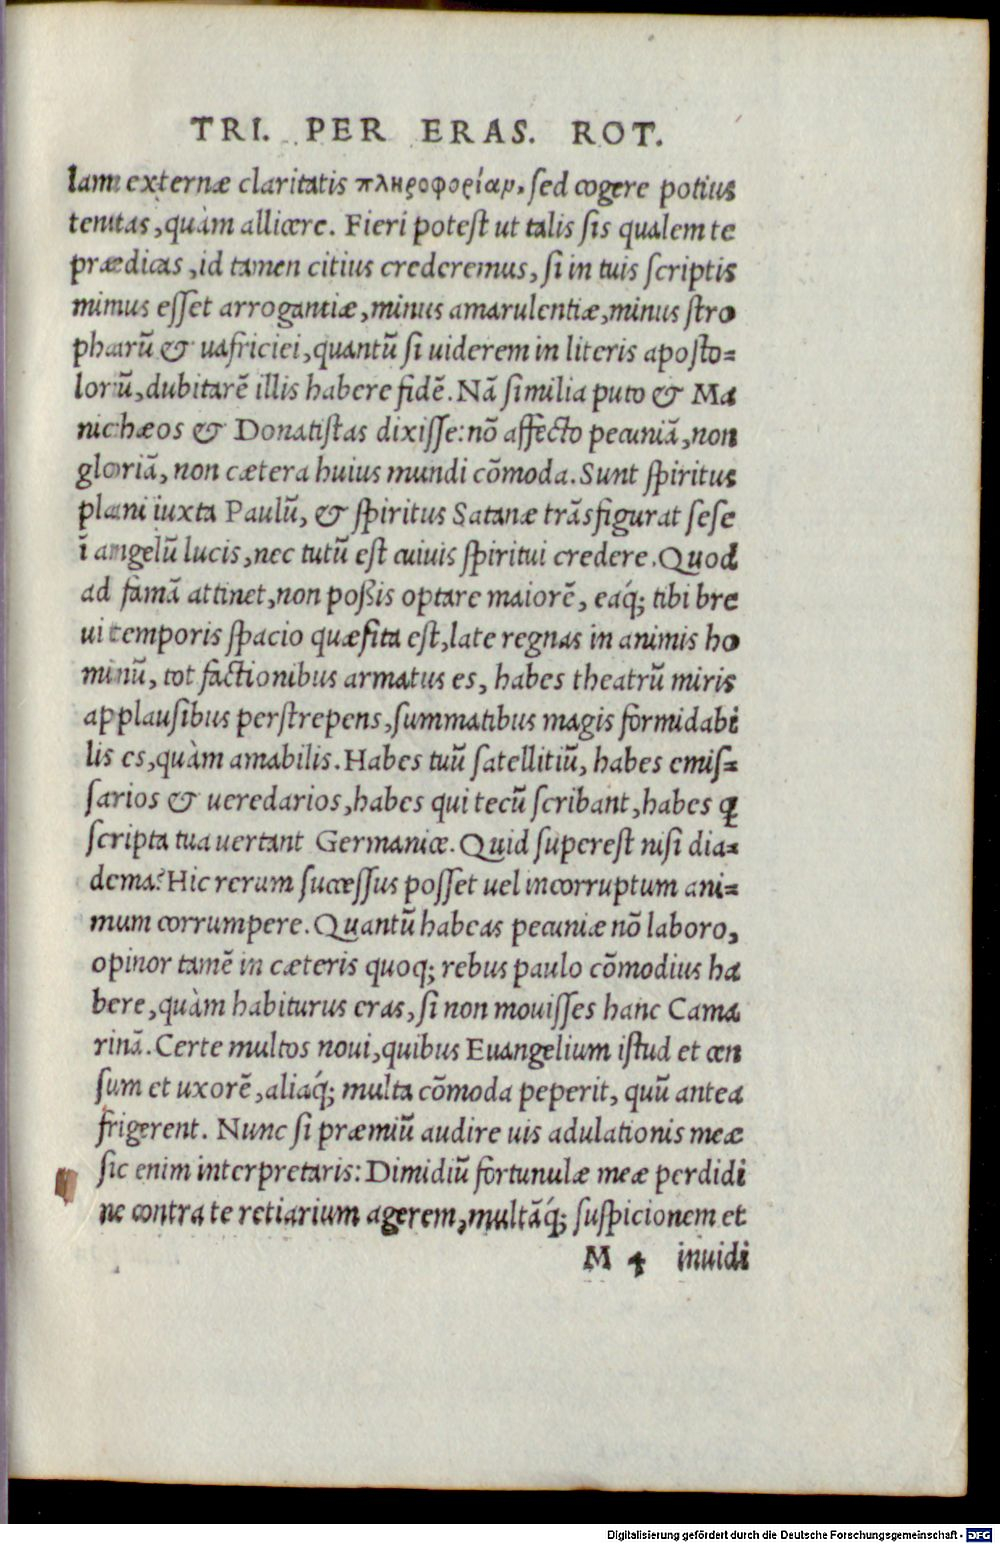 TRI. PER ERAS. ROT.
lam externæ claritatis πληροφορίαν, sed cogere potius
tentas, quàm allicere. Fieri potest ut talis sis qualem te
prædicas, id tamen citius crederemus, si in tuis scriptis
minus esset arrogantiæ, minus amarulentiæ, minus stro
pharū & uafriciei, quantū si uiderem in literis aposto=
lorū, dubitarē illis habere fidē. Nā similia puto & Ma
nichæos & Donatistas dixisse: nō affecto pecuniā, non
gloriā, non cætera huius mundi cōmoda. Sunt spiritus
plani iuxta Paulū, & spiritus Satanæ trāsfigurat sese
ī angelū lucis, nec tutū est cuiuis spiritui credere. Quod
ad famā attinet, non poßis optare maiorē, eáq; tibi bre
ui temporis spacio quæsita est, late regnas in animis ho
minū, tot factionibus armatus es, habes theatrū miris
applausibus perstrepens, summatibus magis formidabi
lis es, quàm amabilis. Habes tuū satellitiū, habes emis=
sarios & ueredarios, habes qui tecū scribant, habes ꝗ
scripta tua uertant Germanice. Quid superest nisi dia=
dema? Hic rerum successus posset uel incorruptum ani=
mum corrumpere. Quantū habeas pecuniæ nō laboro,
opinor tamē in cæteris quoq; rebus paulo cōmodius ha
bere, quàm habiturus eras, si non mouisses hanc Cama
rinā. Certe multos noui, quibus Euangelium istud et cen
sum et uxorē, aliaq́; multa cōmoda peperit, quū antea
frigerent. Nunc si præmiū audire uis adulationis meæ
sic enim interpretaris: Dimidiū fortunulæ meæ perdidi
ne contra te retiarium agerem, multāq́; suspicionem et
M 4 inuidi
Digitalisierung gefördert durch die Deutsche Forschungsgemeinschaft - DFG